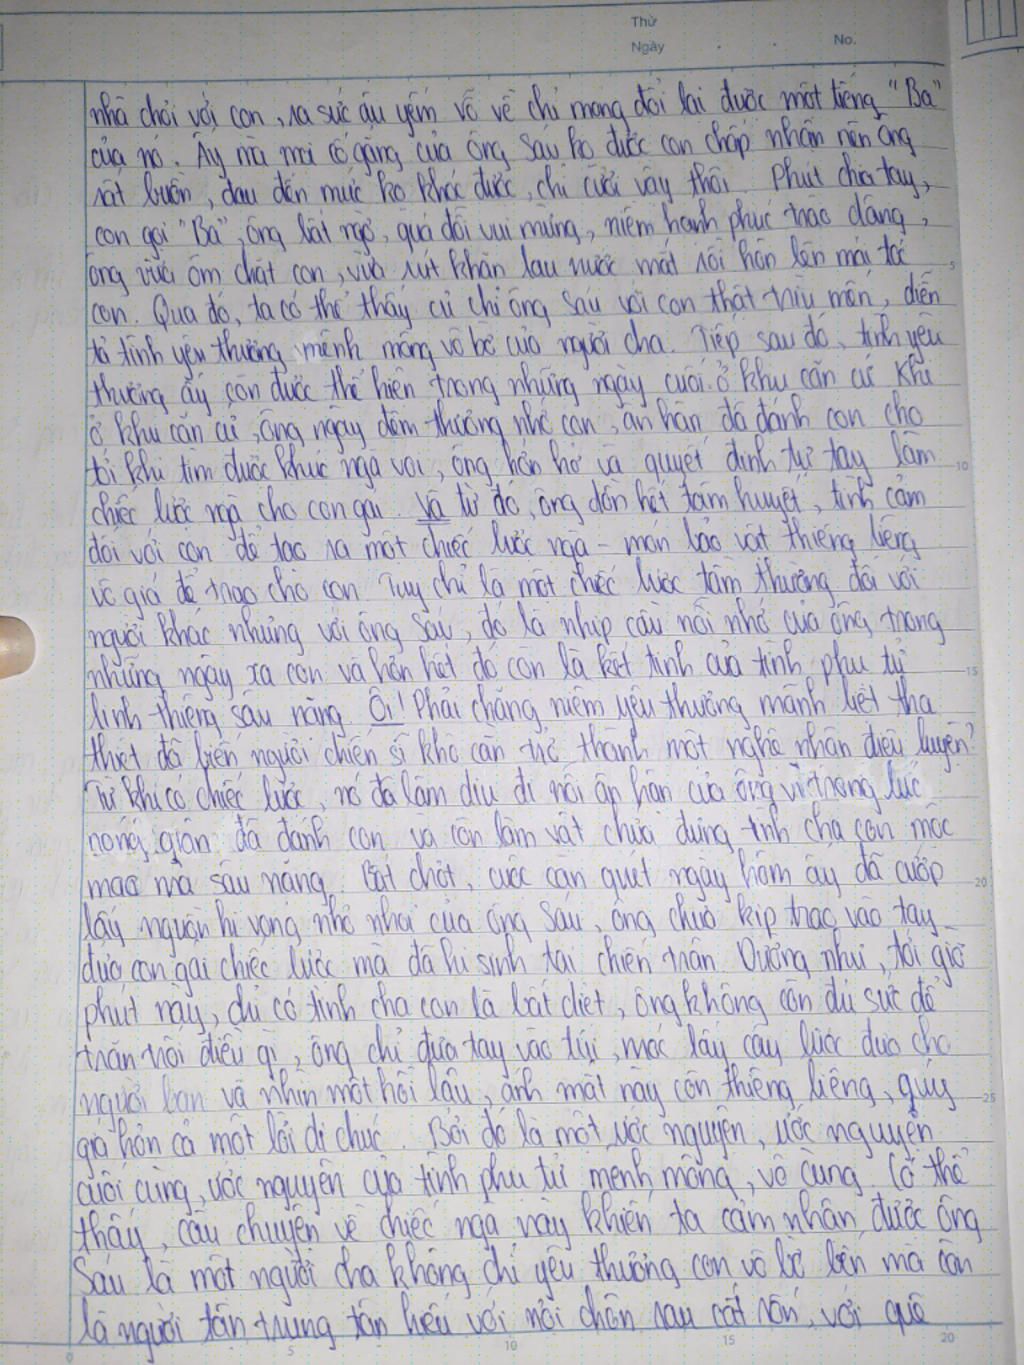 Thứ
Ngày . . No.
nhà chơi với con, ra sức âu yếm vỗ về chỉ mong đổi lại được một tiếng "Ba"
của nó. Ấy mà mọi cố gắng của ông Sáu ko được con chấp nhận nên ông
rất buồn, đau đến mức ko khóc được, chỉ cười vậy thôi. Phút chia tay,
con gọi "Ba", ông bất ngờ, quá đỗi vui mừng, niềm hạnh phúc trào dâng,
ông vừa ôm chặt con, vừa rút khăn lau nước mắt rồi hôn lên mái tóc
con. Qua đó, ta có thể thấy cử chỉ ông Sáu với con thật trìu mến, diễn
tả tình yêu thương mênh mông vô bờ của người cha. Tiếp sau đó, tình yêu
thương ấy còn được thể hiện trong những ngày cuối ở khu căn cứ. Khi
ở khu căn cứ, ông ngày đêm thương nhớ con, ân hận đã đánh con cho
tới khi tìm được khúc ngà voi, ông hớn hở và quyết định tự tay làm
chiếc lược ngà cho con gái. Và từ đó, ông dồn hết tâm huyết, tình cảm
đối với con để tạo ra một chiếc lược ngà - món bảo vật thiêng liêng
vô giá để trao cho con. Tuy chỉ là một chiếc lược tầm thường đối với
người khác nhưng với ông Sáu, đó là nhịp cầu nỗi nhớ của ông trong
những ngày xa con và hơn hết đó còn là kết tinh của tình phụ tử
linh thiêng sâu nặng. Ôi! Phải chăng niềm yêu thương mãnh liệt tha
thiết đã biến người chiến sĩ khô cằn trở thành một nghệ nhân điêu luyện?
Từ khi có chiếc lược, nó đã làm dịu đi nỗi ân hận của ông vì trong lúc
nóng giận đã đánh con và còn làm vật chứa đựng tình cha con mộc
mạc mà sâu nặng. Bất chợt, cuộc càn quét ngày hôm ấy đã cướp
lấy nguồn hi vọng nhỏ nhoi của ông Sáu, ông chưa kịp trao vào tay
đứa con gái chiếc lược mà đã hi sinh tại chiến trận. Dường như, tới giờ
phút này, chỉ có tình cha con là bất diệt, ông không còn đủ sức để
trăn trối điều gì, ông chỉ đưa tay vào túi, móc lấy cây lược đưa cho
người bạn và nhìn một hồi lâu, ánh mắt này còn thiêng liêng, quý
giá hơn cả một lời di chúc. Bởi đó là một ước nguyện, ước nguyện
cuối cùng, ước nguyện của tình phụ tử mênh mông, vô cùng. Có thể
thấy, câu chuyện về chiếc ngà này khiến ta cảm nhận được ông
Sáu là một người cha không chỉ yêu thương con vô bờ bến mà còn
là người tận trung tận hiếu với nơi chôn rau cắt rốn, với quê
5
10
15
20
25
0 5 10 15 20